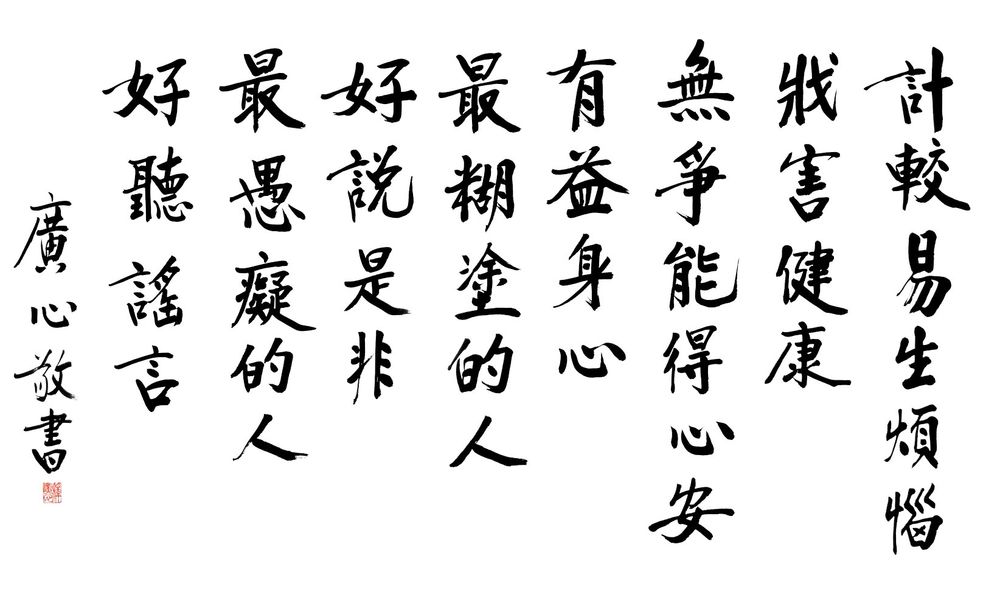 計較易生煩惱
戕害健康
無爭能得心安
有益身心
最糊塗的人
好說是非
最愚癡的人
好聽謠言
廣心敬書